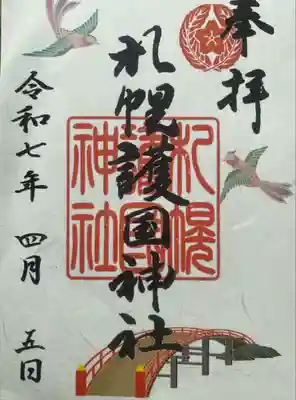 奉拝
札幌護国神社
札幌護国神社
令和七年 四月 五日